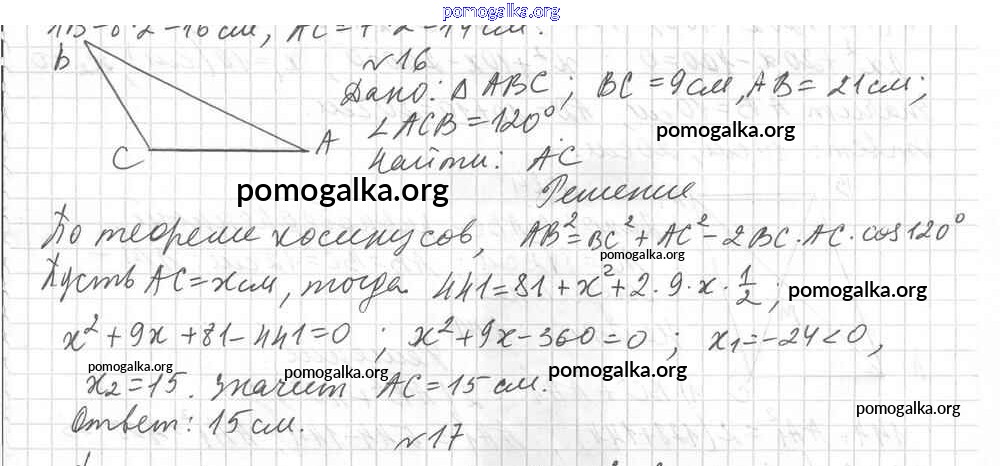 pomogalka.org
AB=8·2=16см, AC=7·2=14см.
№16
B
Дано: Δ ABC; BC=9см, AB=21см;
∠ACB=120°.
pomogalka.org
C
A
Найти: AC
pomogalka.org
Решение
По теореме косинусов, AB²=BC²+AC²-2BC·AC·cos120°
pomogalka.org
Пусть AC=xсм, тогда 441=81+x²+2·9·x·1/2;
pomogalka.org
x²+9x+81-441=0; x²+9x-360=0; x₁=-24<0,
pomogalka.org
pomogalka.org
pomogalka.org
x₂=15. Значит AC=15см.
pomogalka.org
Ответ: 15см.
№17